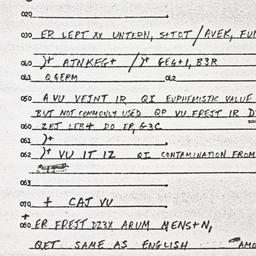 020
030 ER LEPT XX UNTERN, S+TCT / AVEK, FUN
040 )+ ATNKEG+ / )+ GEG+1, B3R
041 QGEPM 042
050 A VU VEJNT IR QI EUPHEMISTIC VALUE
BUT NOT COMMONLY USED QP VU FREST IR
060 ZET LER+ DO EP, G3C
061 )+
062 )+ VU IT IZ QI CONTAMINATION FROM
063
070 + CAJ VU
080 ER FREST DZ3X ARUM MENS+N,
QET SAME AS ENGLISH